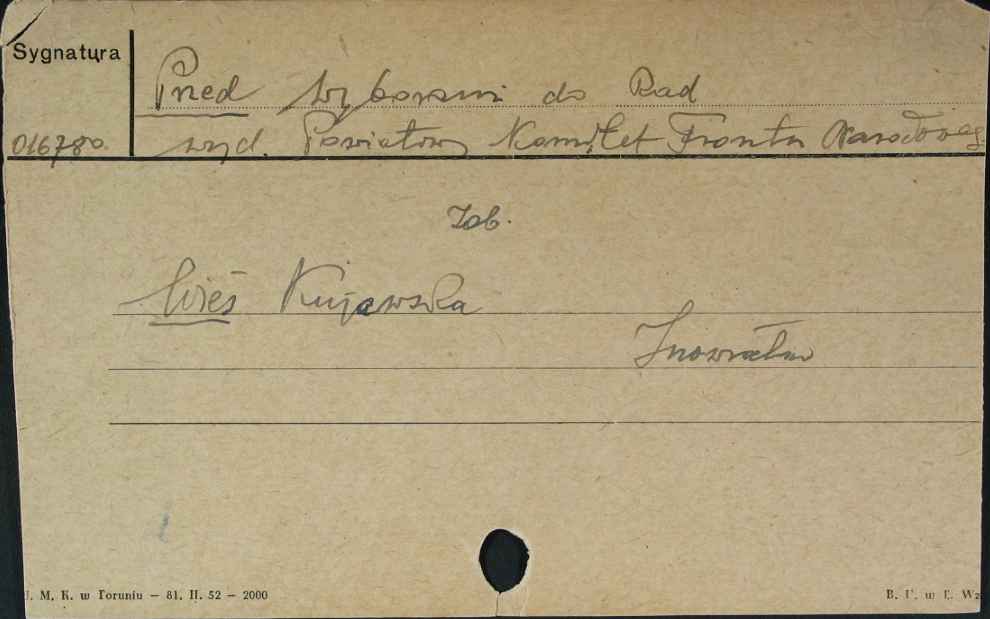 Sygnatura
Przed Wyborami do Rad
016780. wyd. Powiatowy Komitet Frontu Narodoweg.
Zob.
Wieś Kujawska
Inowrocław
U. M. K. w Toruniu — 81. II. 52 — 2000